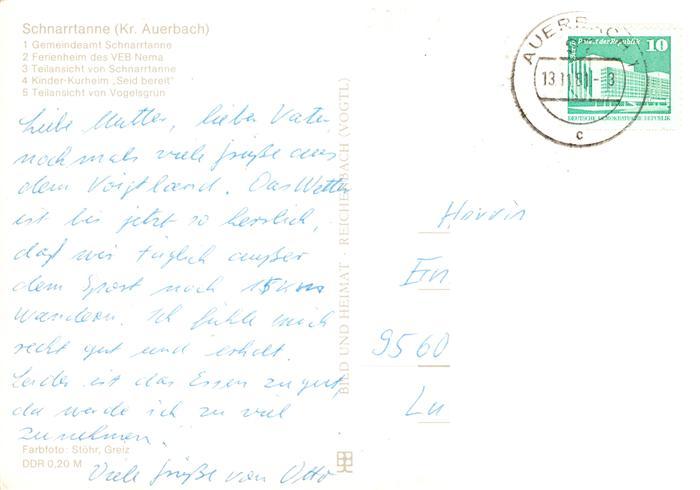 Schnarrtanne (Kr. Auerbach)
1 Gemeindeamt Schnarrtanne
2 Ferienheim des VEB Nema
3 Teilansicht von Schnarrtanne
4 Kinder-Kurheim „Seid bereit"
5 Teilansicht von Vogelsgrün
Liebe Mutter, lieber Vater,
nochmals viele Grüße aus
dem Voigtland. Das Wetter
ist bis jetzt so herrlich,
daß wir täglich außer
dem Sport noch 15 km
wandern. Ich fühle mich
recht gut und erholt.
Leider ist das Essen zu gut,
da werde ich zu viel
zunehmen.
Viele Grüße von Otto
Farbfoto: Stöhr, Greiz
DDR 0,20 M
BILD UND HEIMAT · REICHENBACH (VOGTL)
AUERBACH 1
13.11.81-8
c
Palast der Republik
10
DEUTSCHE DEMOKRATISCHE REPUBLIK
9560